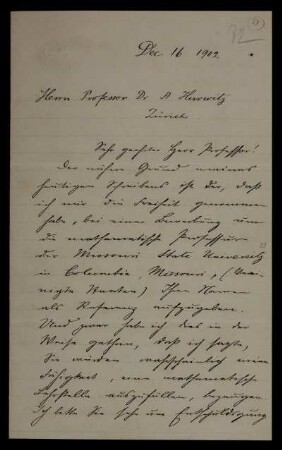 Dec. 16 1902.
Herrn Professor Dr A Hurwitz
Zürich
Sehr geehrter Herr Professor!
Der nähere Grund meines
heutigen Schreibens ist der, daß
ich mir die Freiheit genommen
habe, bei einer Bewerbung um
die mathematische Professur
der Missouri State University
in Columbia, Missouri, (Verei-
nigte Staaten) Ihren Namen
als Referenz aufzugeben.
Und zwar habe ich das in der
Weise gethan, daß ich sagte,
Sie würden wahrscheinlich meine
Fähigkeit, eine mathematische
Lehrstelle auszufüllen, bezeugen.
Ich bitte Sie sehr um Entschuldigung